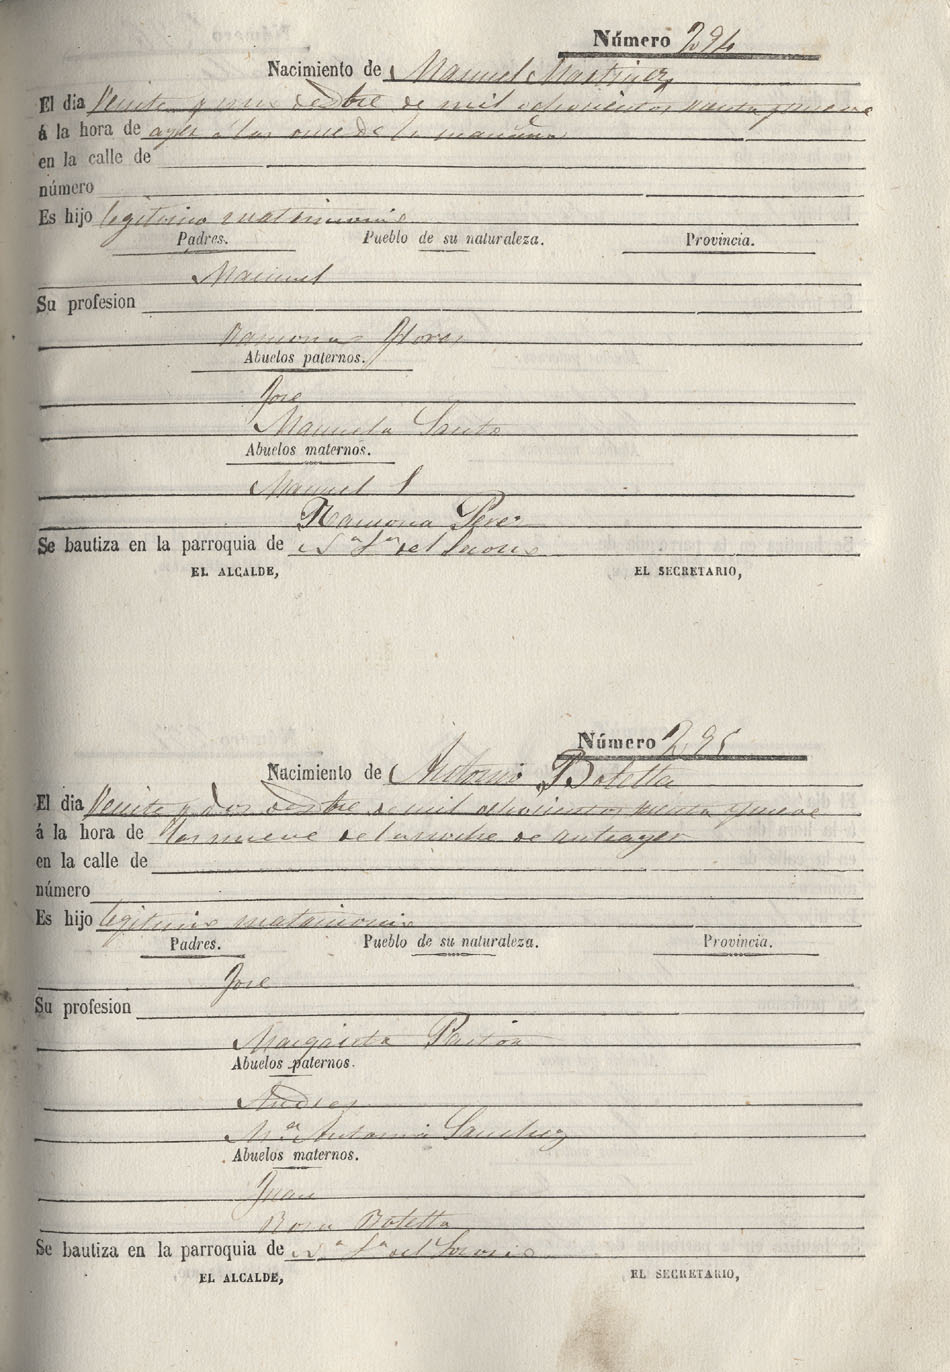 Número 294
Nacimiento de Manuel Martinez
El dia Veinte y dos de mil ochocientos y nueve
á la hora de ayer á las once de la mañana
en la calle de
número
Es hijo legitimo matrimonio
Padres. Pueblo de su naturaleza. Provincia.
Manuel
Su profesion
Ramona Flores
Abuelos paternos.
Jose
Manuela Santo
Abuelos maternos.
Manuel
Ramona Perez
Se bautiza en la parroquia de N.ª S.ª del Socorro
EL ALCALDE, EL SECRETARIO,
Número 295
Nacimiento de Antonio Botella
El dia Veinte y dos de mil ochocientos y nueve
á la hora de las nueve de la noche de anteayer
en la calle de
número
Es hijo legitimo matrimonio
Padres. Pueblo de su naturaleza. Provincia.
Jose
Su profesion
Margarita Pastor
Abuelos paternos.
Andres
M.ª Antonia Sanchez
Abuelos maternos.
Juan
Rosa Botella
Se bautiza en la parroquia de N.ª S.ª del Socorro
EL ALCALDE, EL SECRETARIO,